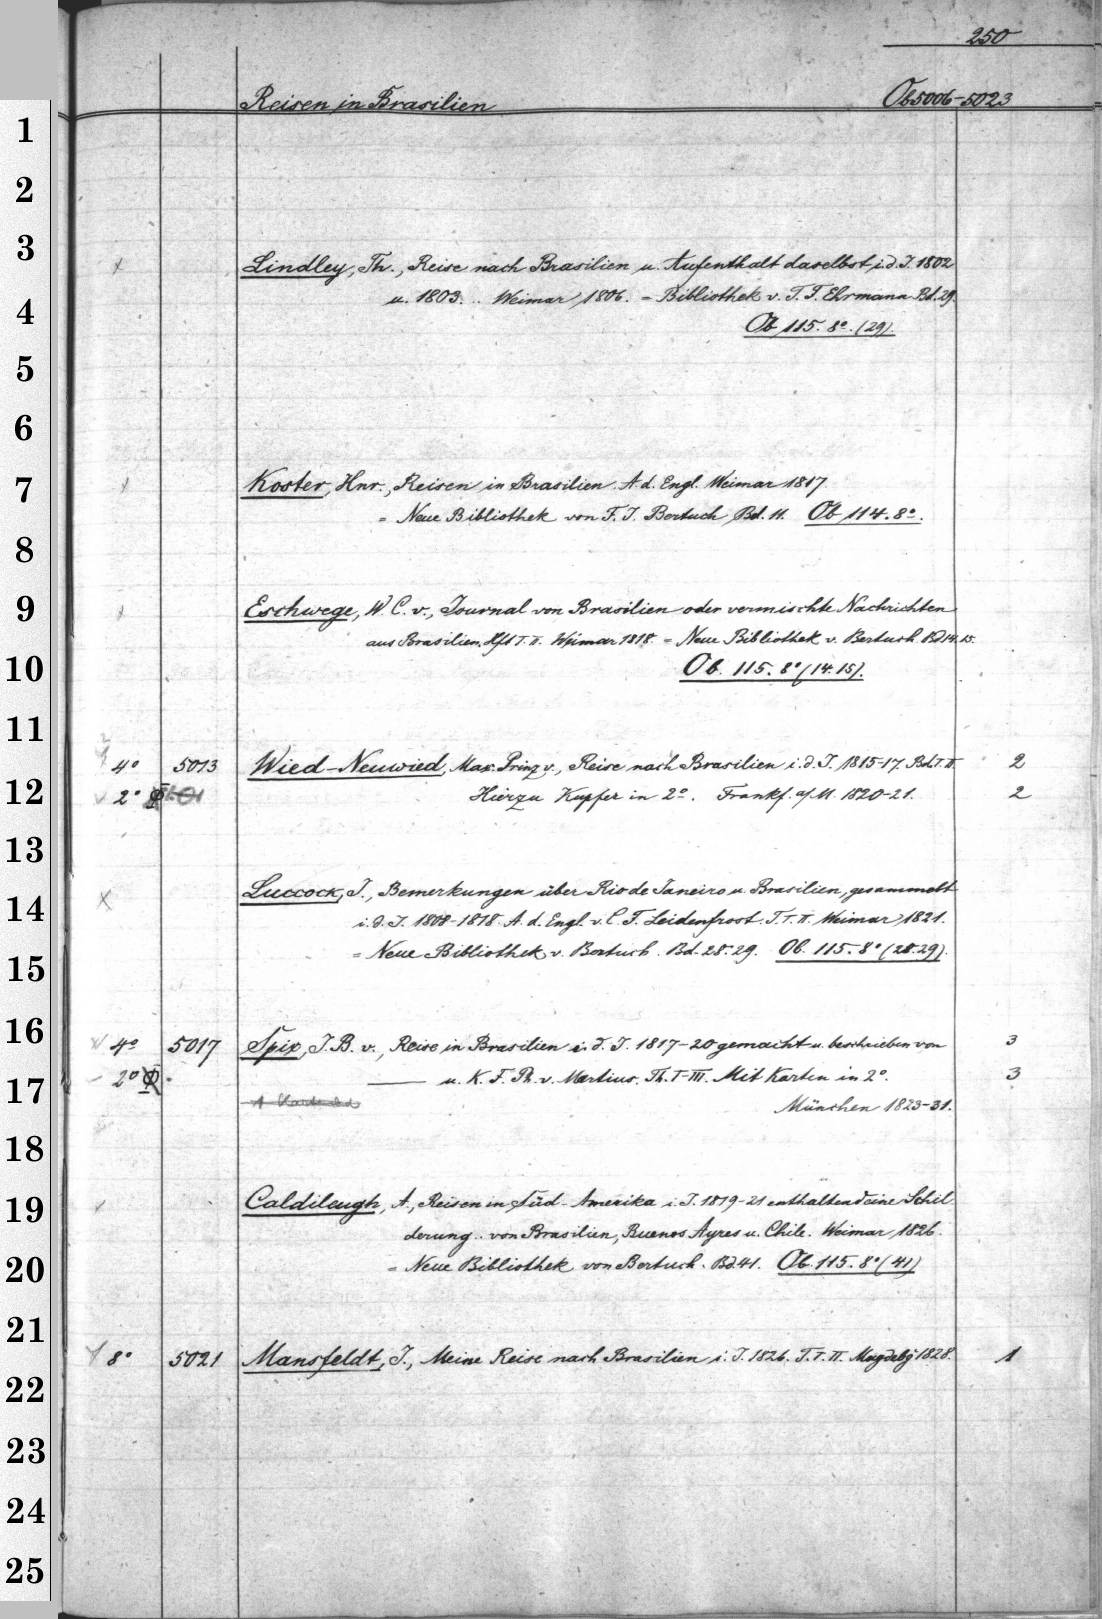 250
Reisen in Brasilien Ob 5006-5023
1
2
3
4
5
6
7
8
9
10
11
12
13
14
15
16
17
18
19
20
21
22
23
24
25
Lindley, Th., Reise nach Brasilien u. Aufenthalt daselbst i. d. J. 1802
u. 1803... Weimar 1806. = Bibliothek v. T. F. Ehrmann Bd. 29.
Ob 115. 8° (29).
Koster, Hnr., Reisen in Brasilien. A. d. Engl. Weimar 1817.
= Neue Bibliothek von F. J. Bertuch Bd. 11. Ob 114. 8°.
Eschwege, W. C. v., Journal von Brasilien oder vermischte Nachrichten
aus Brasilien. Hft I. II. Weimar 1818. = Neue Bibliothek v. Bertuch. Bd 14. 15.
Ob. 115. 8° (14. 15).
4° 5013 Wied-Neuwied, Max. Prinz v., Reise nach Brasilien i. d. J. 1815-17. Bd. I. II. 2
2° Hierzu Kupfer in 2°. Frankf. a/M. 1820-21. 2
Luccock, J., Bemerkungen über Rio de Janeiro u. Brasilien, gesammelt
i. d. J. 1808-1818. A. d. Engl. v. C. F. Leidenfrost. T. I. II. Weimar 1821.
= Neue Bibliothek v. Bertuch. Bd. 28. 29. Ob. 115. 8° (28. 29).
4° 5017 Spix, J. B. v., Reise in Brasilien i. d. J. 1817-20 gemacht u. beschrieben von 3
2° — u. K. F. Ph. v. Martius. Th. I-III. Mit Karten in 2°. 3
München 1823-31.
Caldileugh, A., Reisen in Süd-Amerika i. J. 1819-21 enthaltend eine Schil
derung.. von Brasilien, Buenos Ayres u. Chile. Weimar 1826.
= Neue Bibliothek von Bertuch. Bd 41. Ob. 115. 8° (41)
8° 5021 Mansfeldt, J., Meine Reise nach Brasilien i. J. 1826. T. I. II. Magdebg 1828. 1